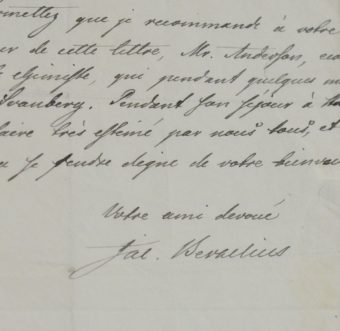 rmettez que je recommande à votre
ur de cette lettre, Mr. Anderson,
chimiste, qui pendant quelques
Svanberg. Pendant son séjour à
faire très estimé par nous tous, et
se rendre digne de votre
Votre ami devoué
Jac. Berzelius